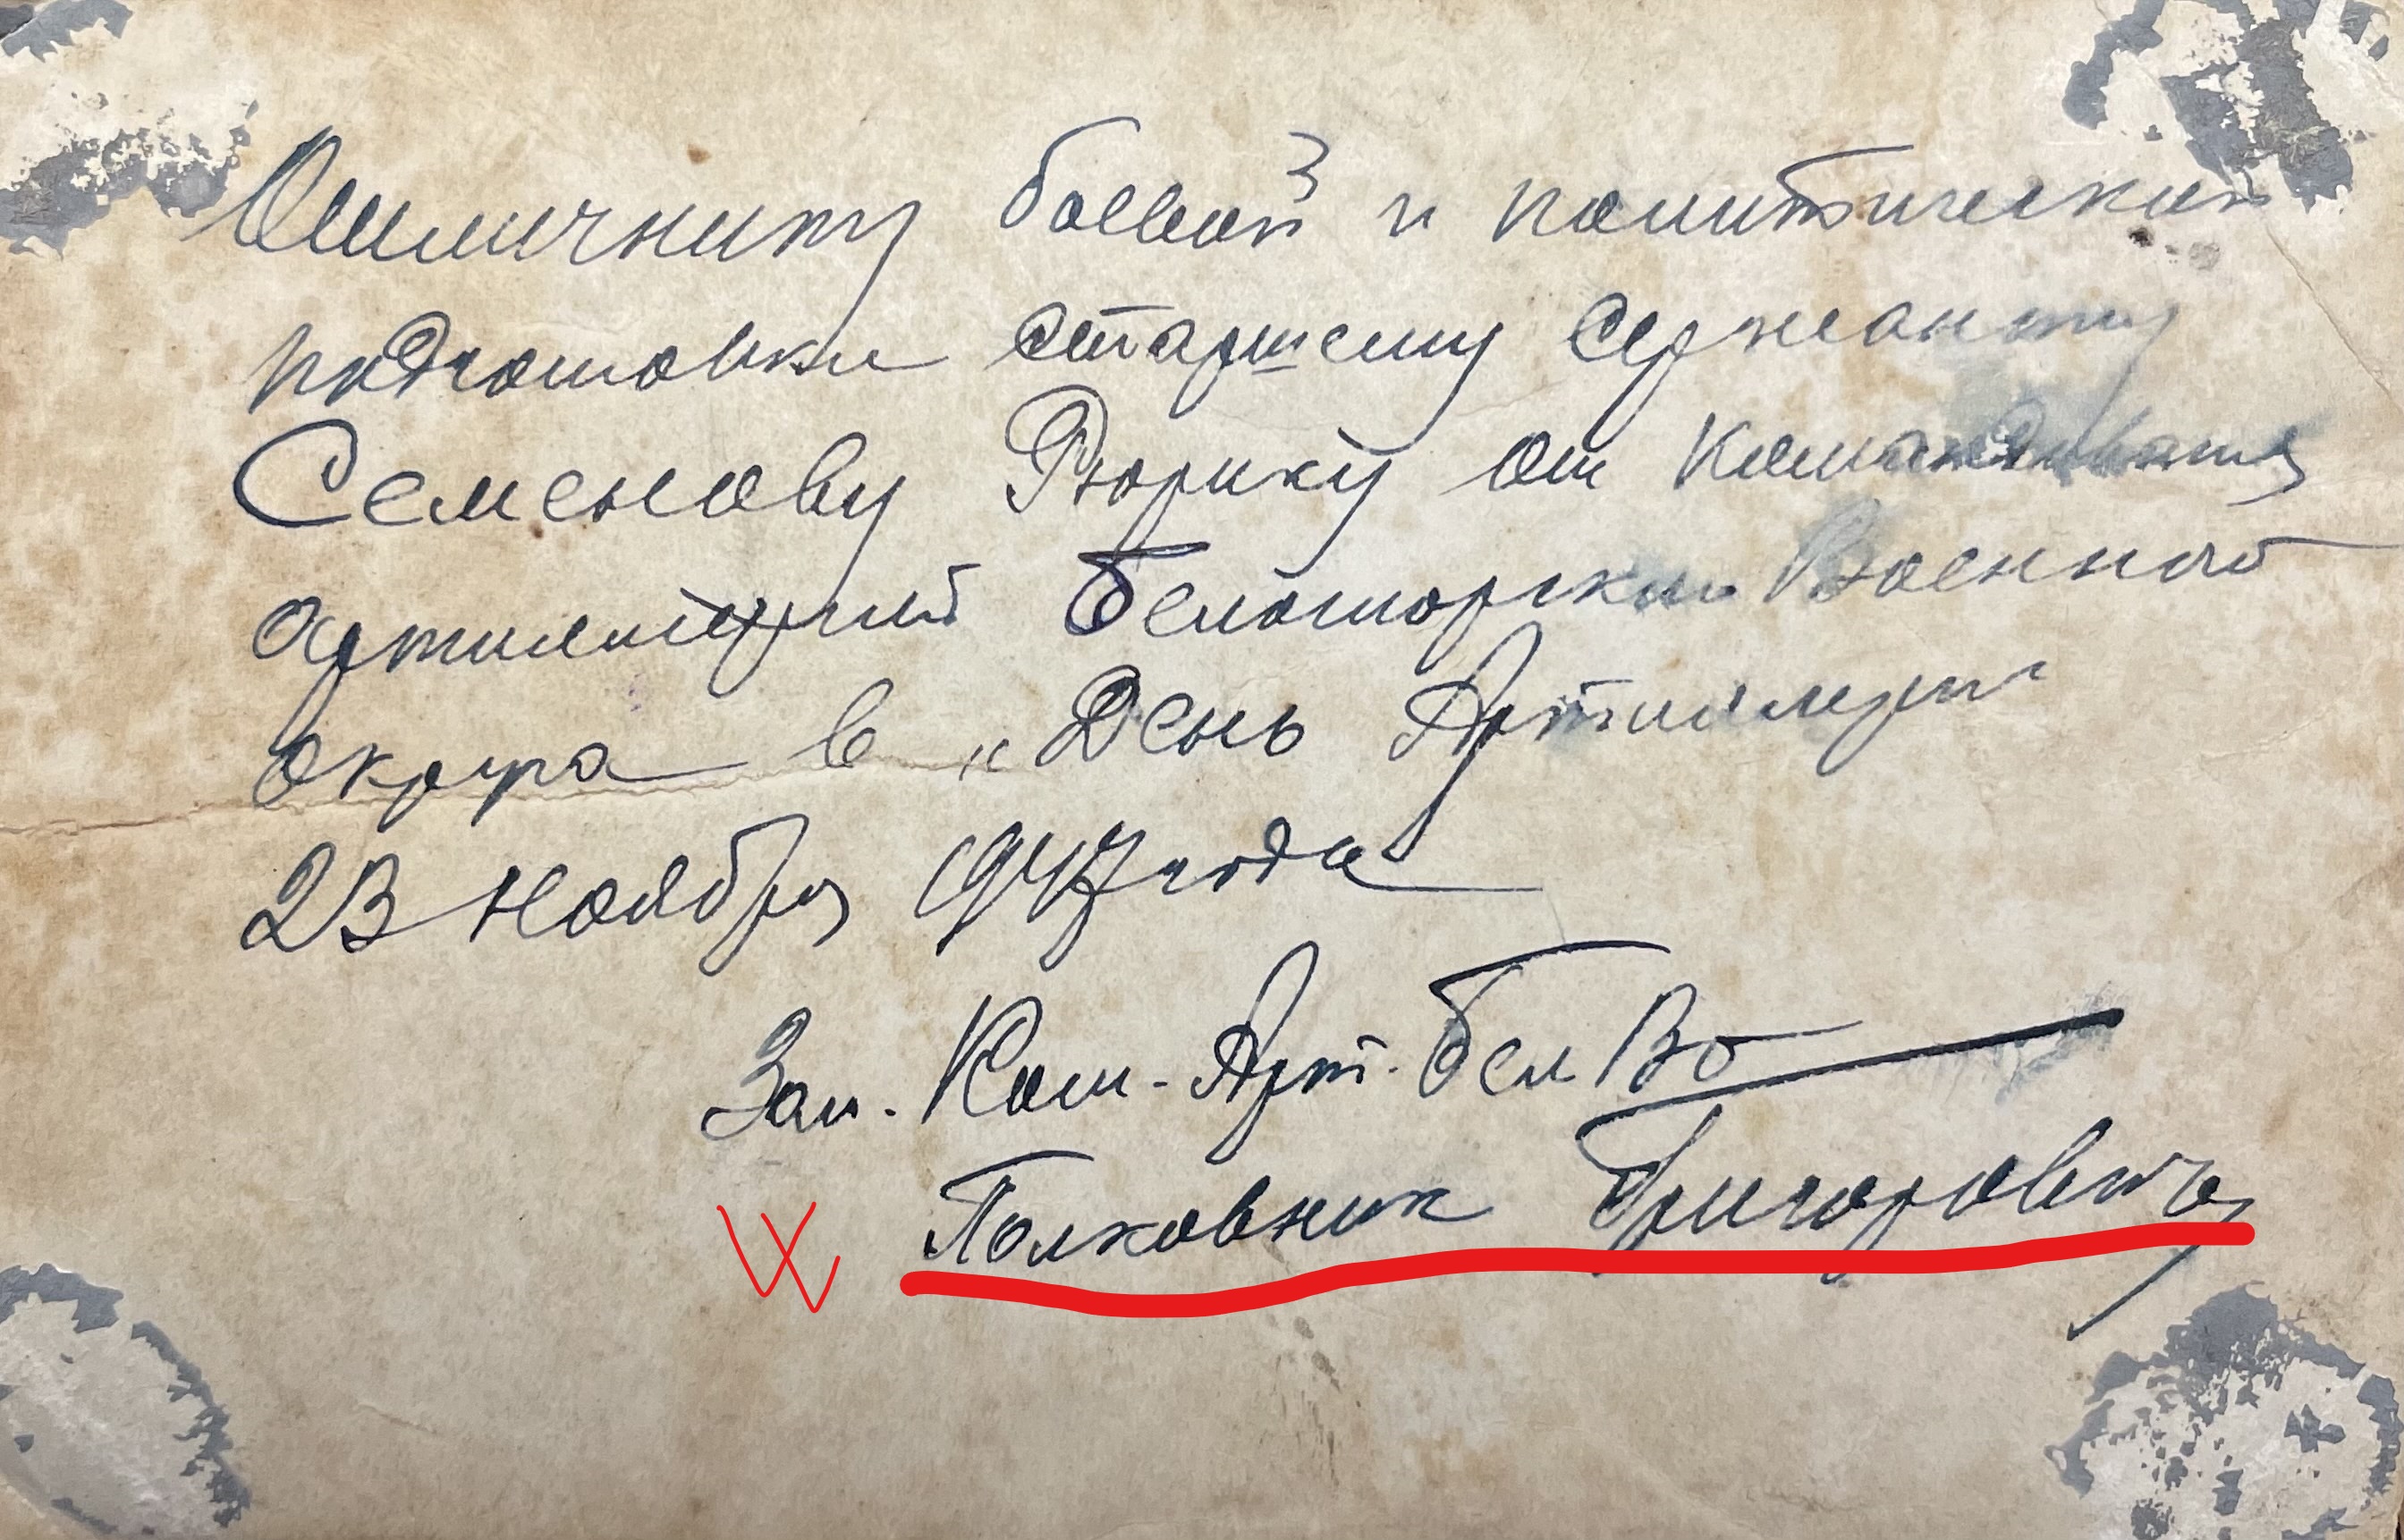 Отличнику боевой и политической
подготовки старшему сержанту
Семенову Рюрику от Командования
Артиллерией Беломорского Военного
округа в „День Артиллерии
23 ноября 1947 года
Зам. Ком. Арт. БелВО
Полковник Григорович